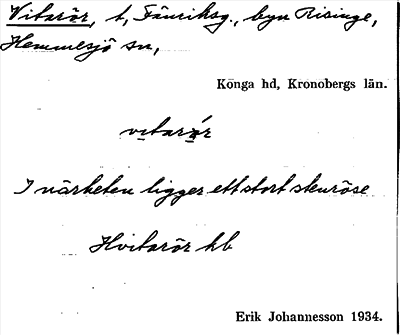 Vitarör, t, Fänriksg., byn Risinge,
Hemmesjö sn,
Konga hd, Kronobergs län.
vitarör
I närheten ligger ett stort stenröse
Hvitarör hb
Erik Johannesson 1934.